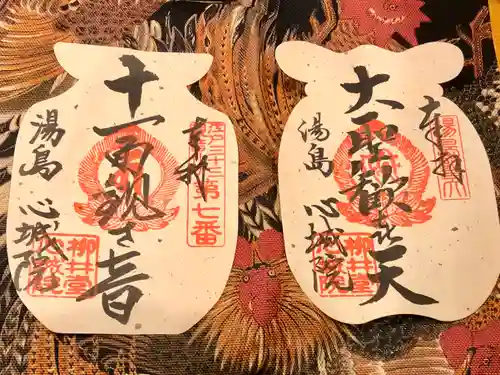 奉拝
第七番
十一面観世音
湯島 心城院
柳井堂
心城院
奉拝
湯島聖天
大聖歓喜天
湯島 心城院
柳井堂
心城院